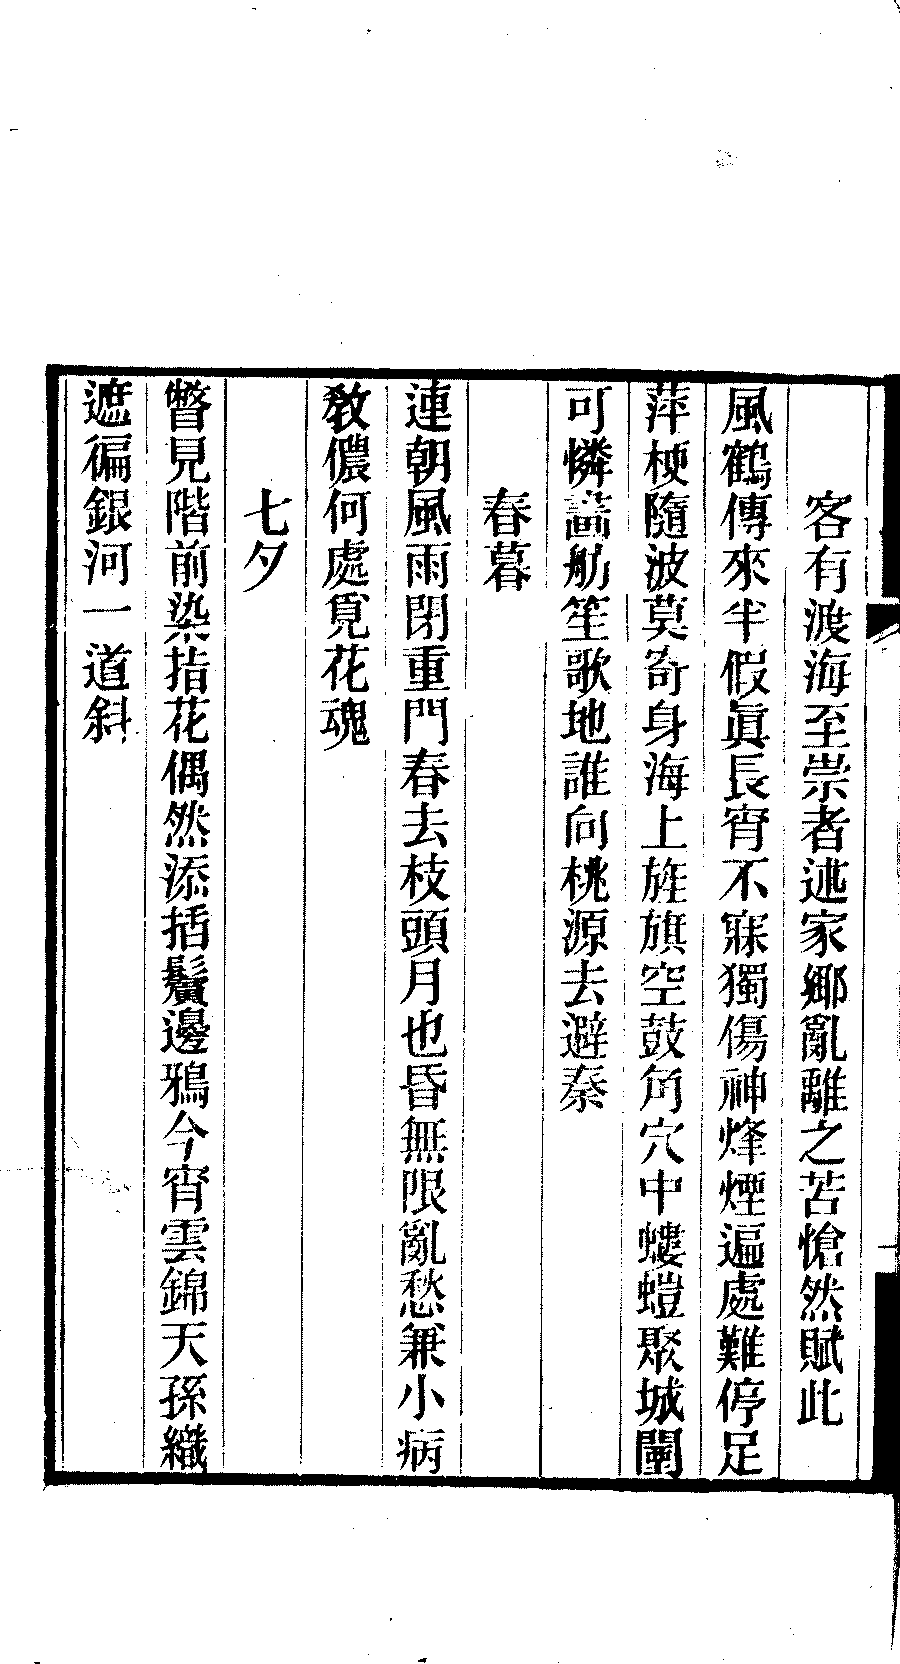 客有渡海至崇者述家鄉亂離之苦愴然賦此
風鶴傳來半假眞長宵不寐獨傷神烽煙遍處難停足
萍梗隨波莫寄身海上旌旗空鼓角穴中螻螘聚城闉
可憐畵舫笙歌地誰向桃源去避秦
春暮
連朝風雨閉重門春去枝頭月也昏無限亂愁兼小病
敎儂何處覓花魂
七夕
瞥見階前染指花偶然添插鬢邊鴉今宵雲錦天孫織
遮徧銀河一道斜